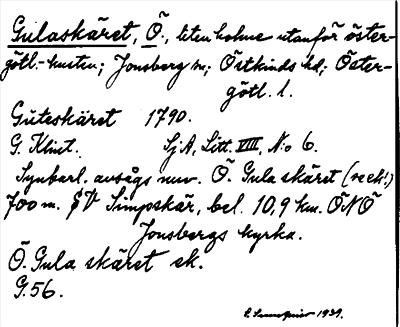 Gulaskäret, Ö., liten holme utanför öster-
götl.-kusten; Jonsberg sn; Östkinds hd; Öster-
götl. l.
Guteskäret 1790.
G. Klint. SjA, Litt. VIII, No 6.
Synbarl. avsågs nuv. Ö. Gula skäret (se ek!)
700 m. SV Simpskär, bel. 10,9 km. ÖNÖ
Jonsbergs kyrka.
Ö. Gula skäret ek.
G.56.
1939.